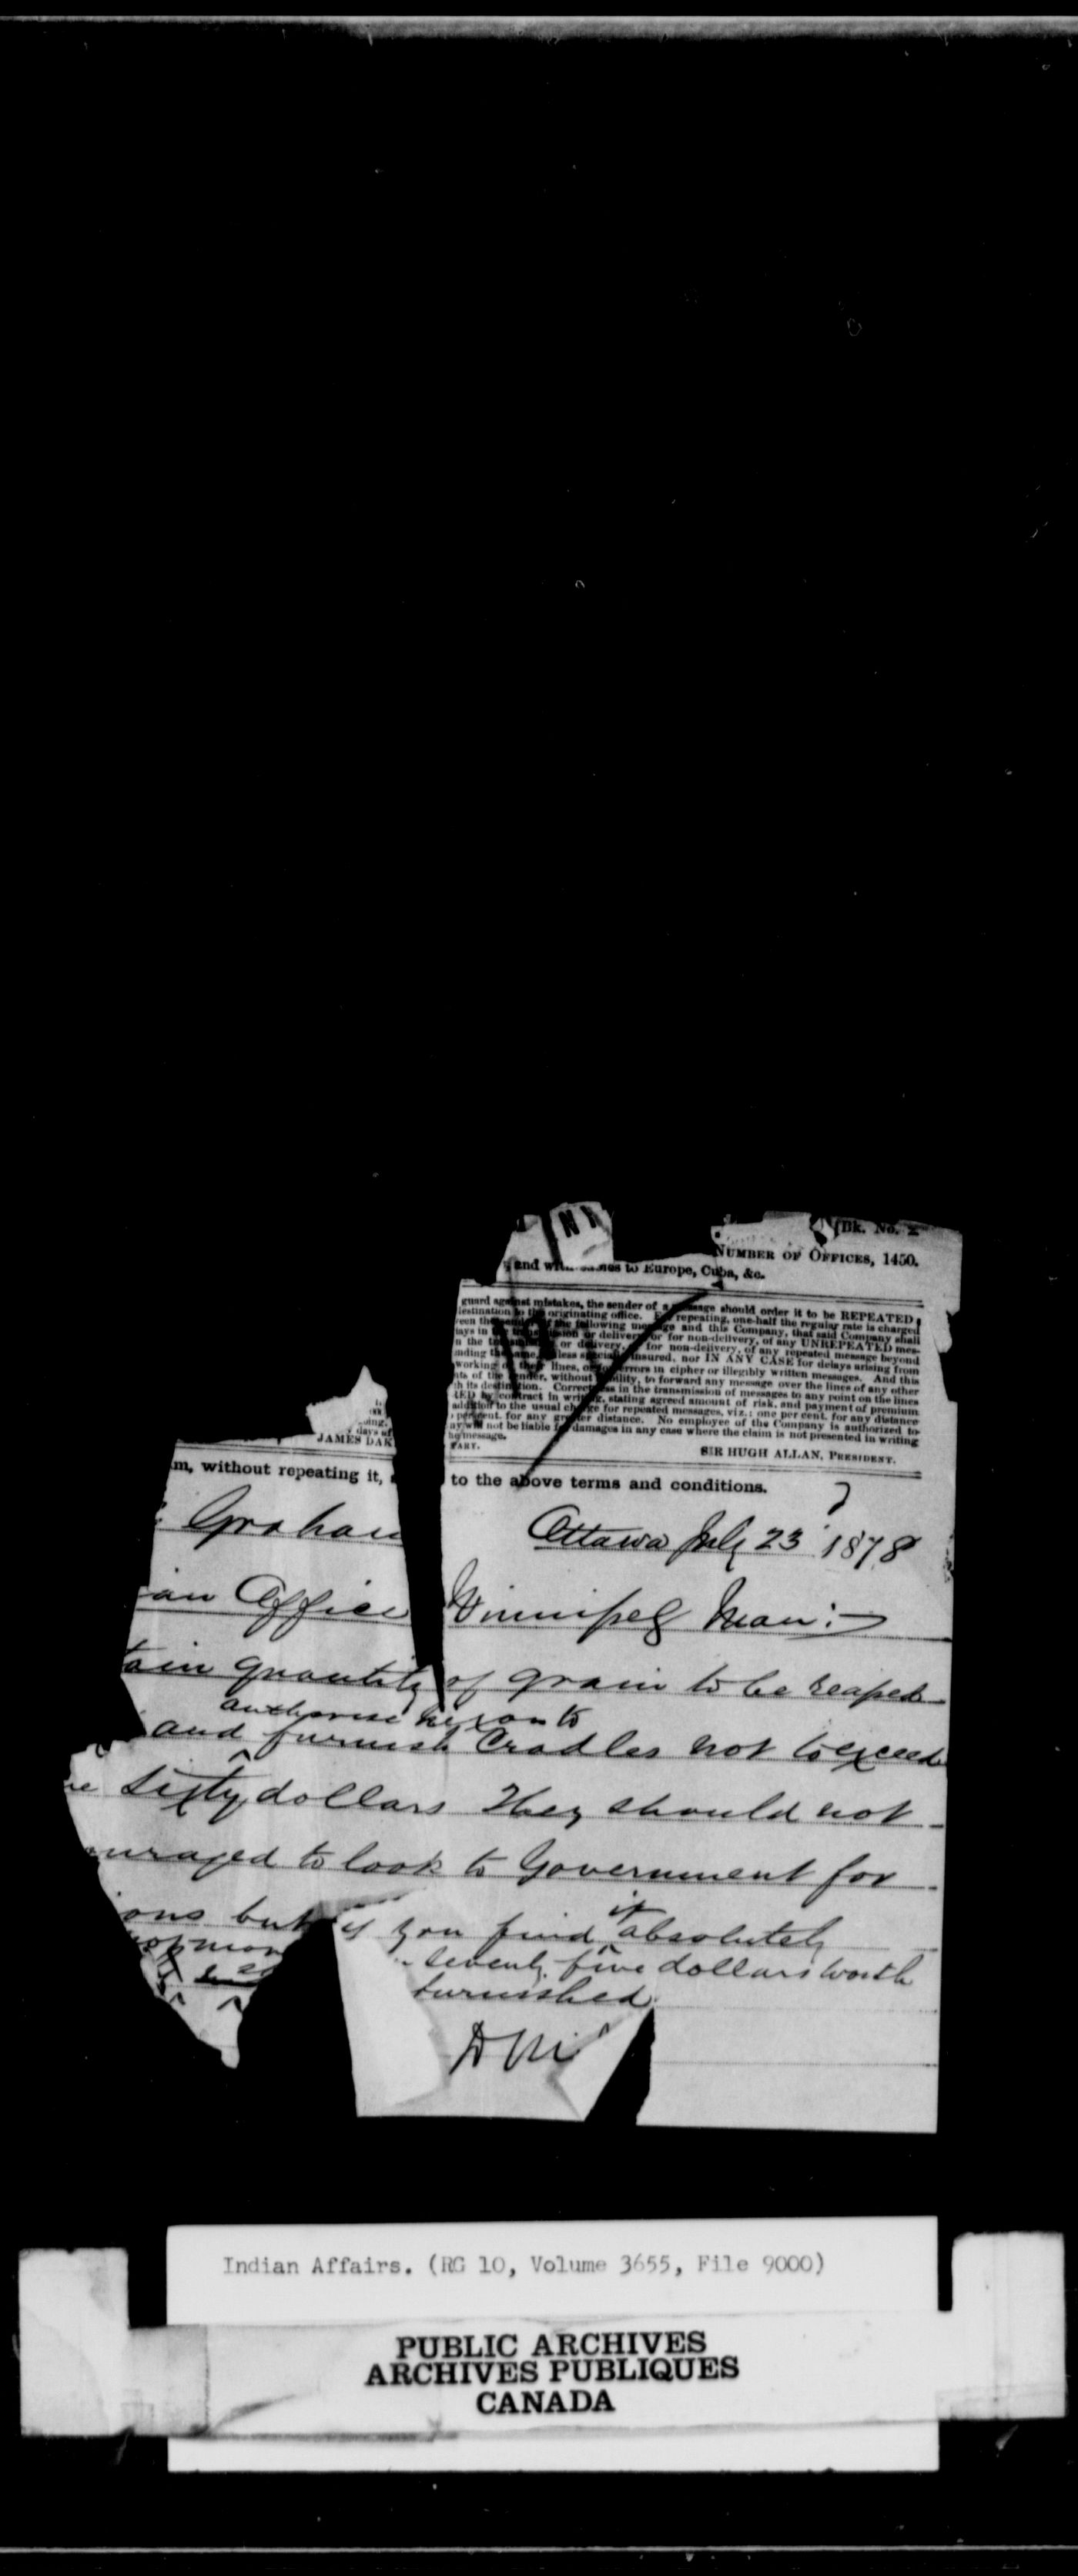 (Bk. No. 2
NUMBER OF OFFICES, 1450.
to Europe, Cuba, &c.
guard against mistakes, the sender of a message should order it to be REPEATED;
originating office. For repeating, one-half the regular rate is charged
the following message and this Company, that said Company shall
or delivery, or for non-delivery, of any UNREPEATED mes-
or delivery, for non-delivery, of any repeated message beyond
unless specially insured, nor IN ANY CASE for delays arising from
working of these lines, or for errors in cipher or illegibly written messages. And this
of the sender, without liability, to forward any message over the lines of any other
its destination. Correctness in the transmission of messages to any point on the lines
contract in writing, stating agreed amount of risk, and payment of premium
addition to the usual charge for repeated messages, viz.: one per cent. for any distance
per cent. for any greater distance. No employee of the Company is authorized to
not be liable for damages in any case where the claim is not presented in writing
message.
days of
JAMES DAK
TARY.
SIR HUGH ALLAN, PRESIDENT.
m, without repeating it, to the above terms and conditions.
Ottawa July 23 1878
Graham
ian Office Winnipeg Man:
tain quantity of grain to be reaped
authorise Nixon to
and furnish Cradles not to exceed
sixty dollars They should not
ouraged to look to Government for
ions but if you find it absolutely
seventy five dollars worth
furnished
Indian Affairs. (RG 10, Volume 3655, File 9000)
PUBLIC ARCHIVES
ARCHIVES PUBLIQUES
CANADA